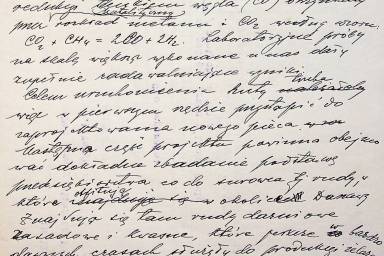 redukcji tlenkiem węgla (CO) otrzymanym
przez rozkład metanu i CO₂ według wzoru:
CO₂ + CH₄ = 2CO + 2H₂. Laboratoryjne próby
na skalę większą wykonane u nas dały
zupełnie zadawalniające wyniki.
Celem uruchomienia huty trzeba
więc w pierwszym rzędzie przystąpić do
zaprojektowania nowego pieca.
Następna część projektu powinna obejmo
wać dokładne zbadanie podstawy
przedsiębiorstwa, co do surowca tj. rudy,
które w okolicy
Znajdują się tam rudy darniowe
zasadowe i kwaśne, które przez bardzo
dawnych czasach służyły do produkcji żelaza